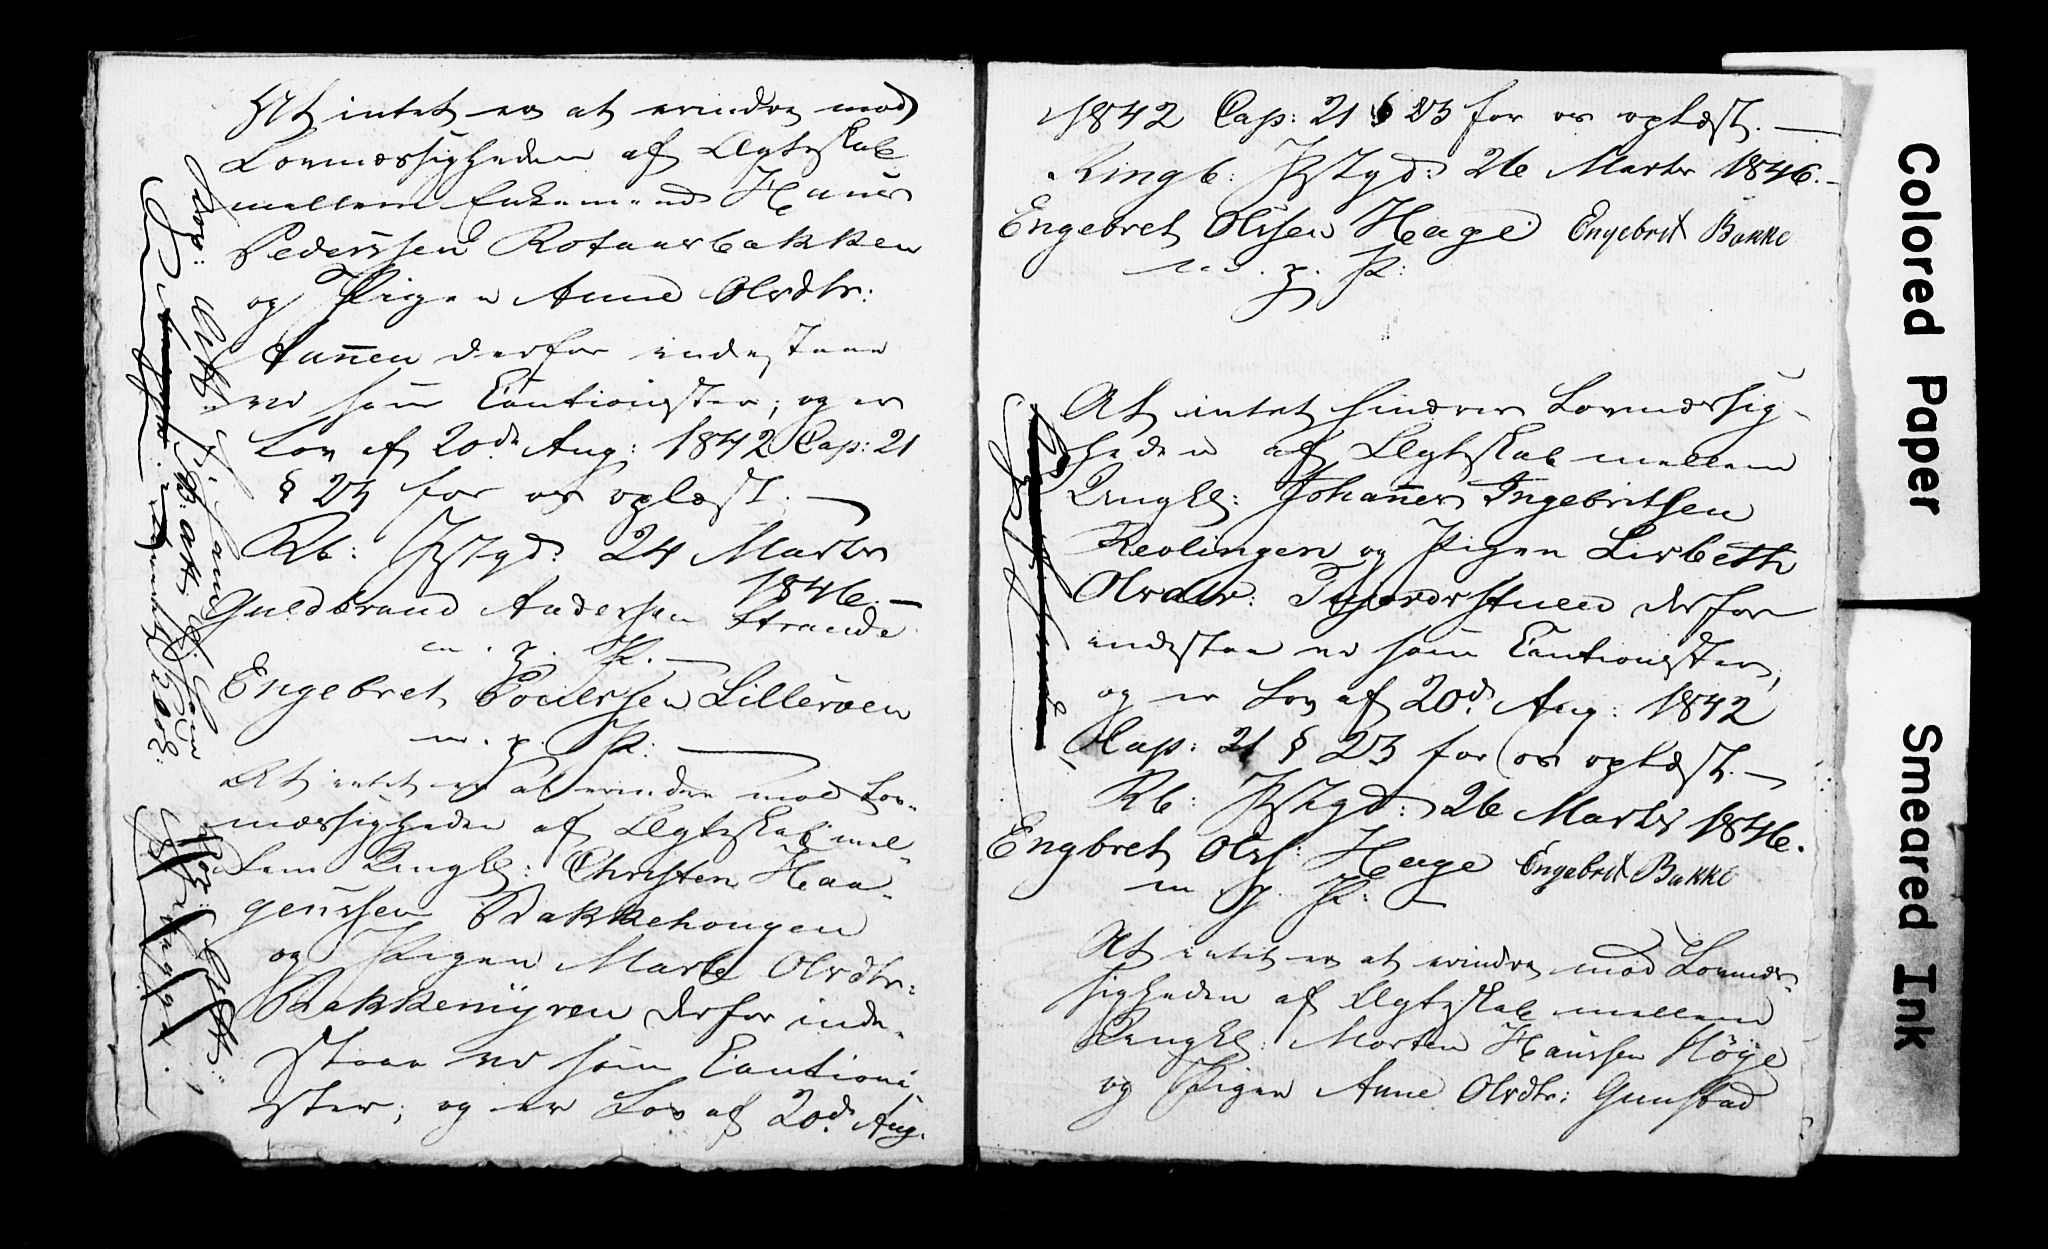 At intet er at erindre mod
Lovmæssigheden af Ægteskab
mellem Enkemand Hans
Pederssen Rofaasbakken
og Pigen Anne Olsdtr:
derfor indestaae
vi som Cautionister; og er
Lov af 20de Aug: 1842 Cap: 21
§ 23 for os oplæst. —
Rb: Pstgd: 24 Marts
1846. —
Guldbrand Andersen Strande
m. p. P. —
Engebret Poulssen Lillersven
m. p. P: —
At intet er at erindre mod Lov-
mæssigheden af Ægteskab mel-
lem Ungk: Christen Haa-
genssen Bakkehougen
og Pigen Marte Olsdtr:
Bakkemyren derfor inde-
staae vi som Cautioni
ster; og er Lov af 20de Aug.
1842 Cap: 21 § 23 for os oplæst. —
Ringb: Pstgd: 26 Marts 1846. —
Engebret Olssen Hage Engebret Bakke
m. p. P:
At intet hindrer Lovmæssig-
heden af Ægteskab mellem
Ungk: Johannes Ingebritsen
Keolingen og Pigen Lisbeth
Olsdtr: derfor
indestaa vi som Cautionister,
og er Lov af 20de Aug: 1842
Cap: 21 § 23 for os oplæst. —
Rb: Pstgd: 26 Marts 1846.
Engbret Ols: Hage Engebret Bakke
m. p. P: —
At intet er at erindre mod Lovmæs-
sigheden af Ægteskab mellem
Ungk: Morten Hanssen Høye
og Pigen Anne Olsdtr: Gunstad
Colored Paper
Smeared Ink